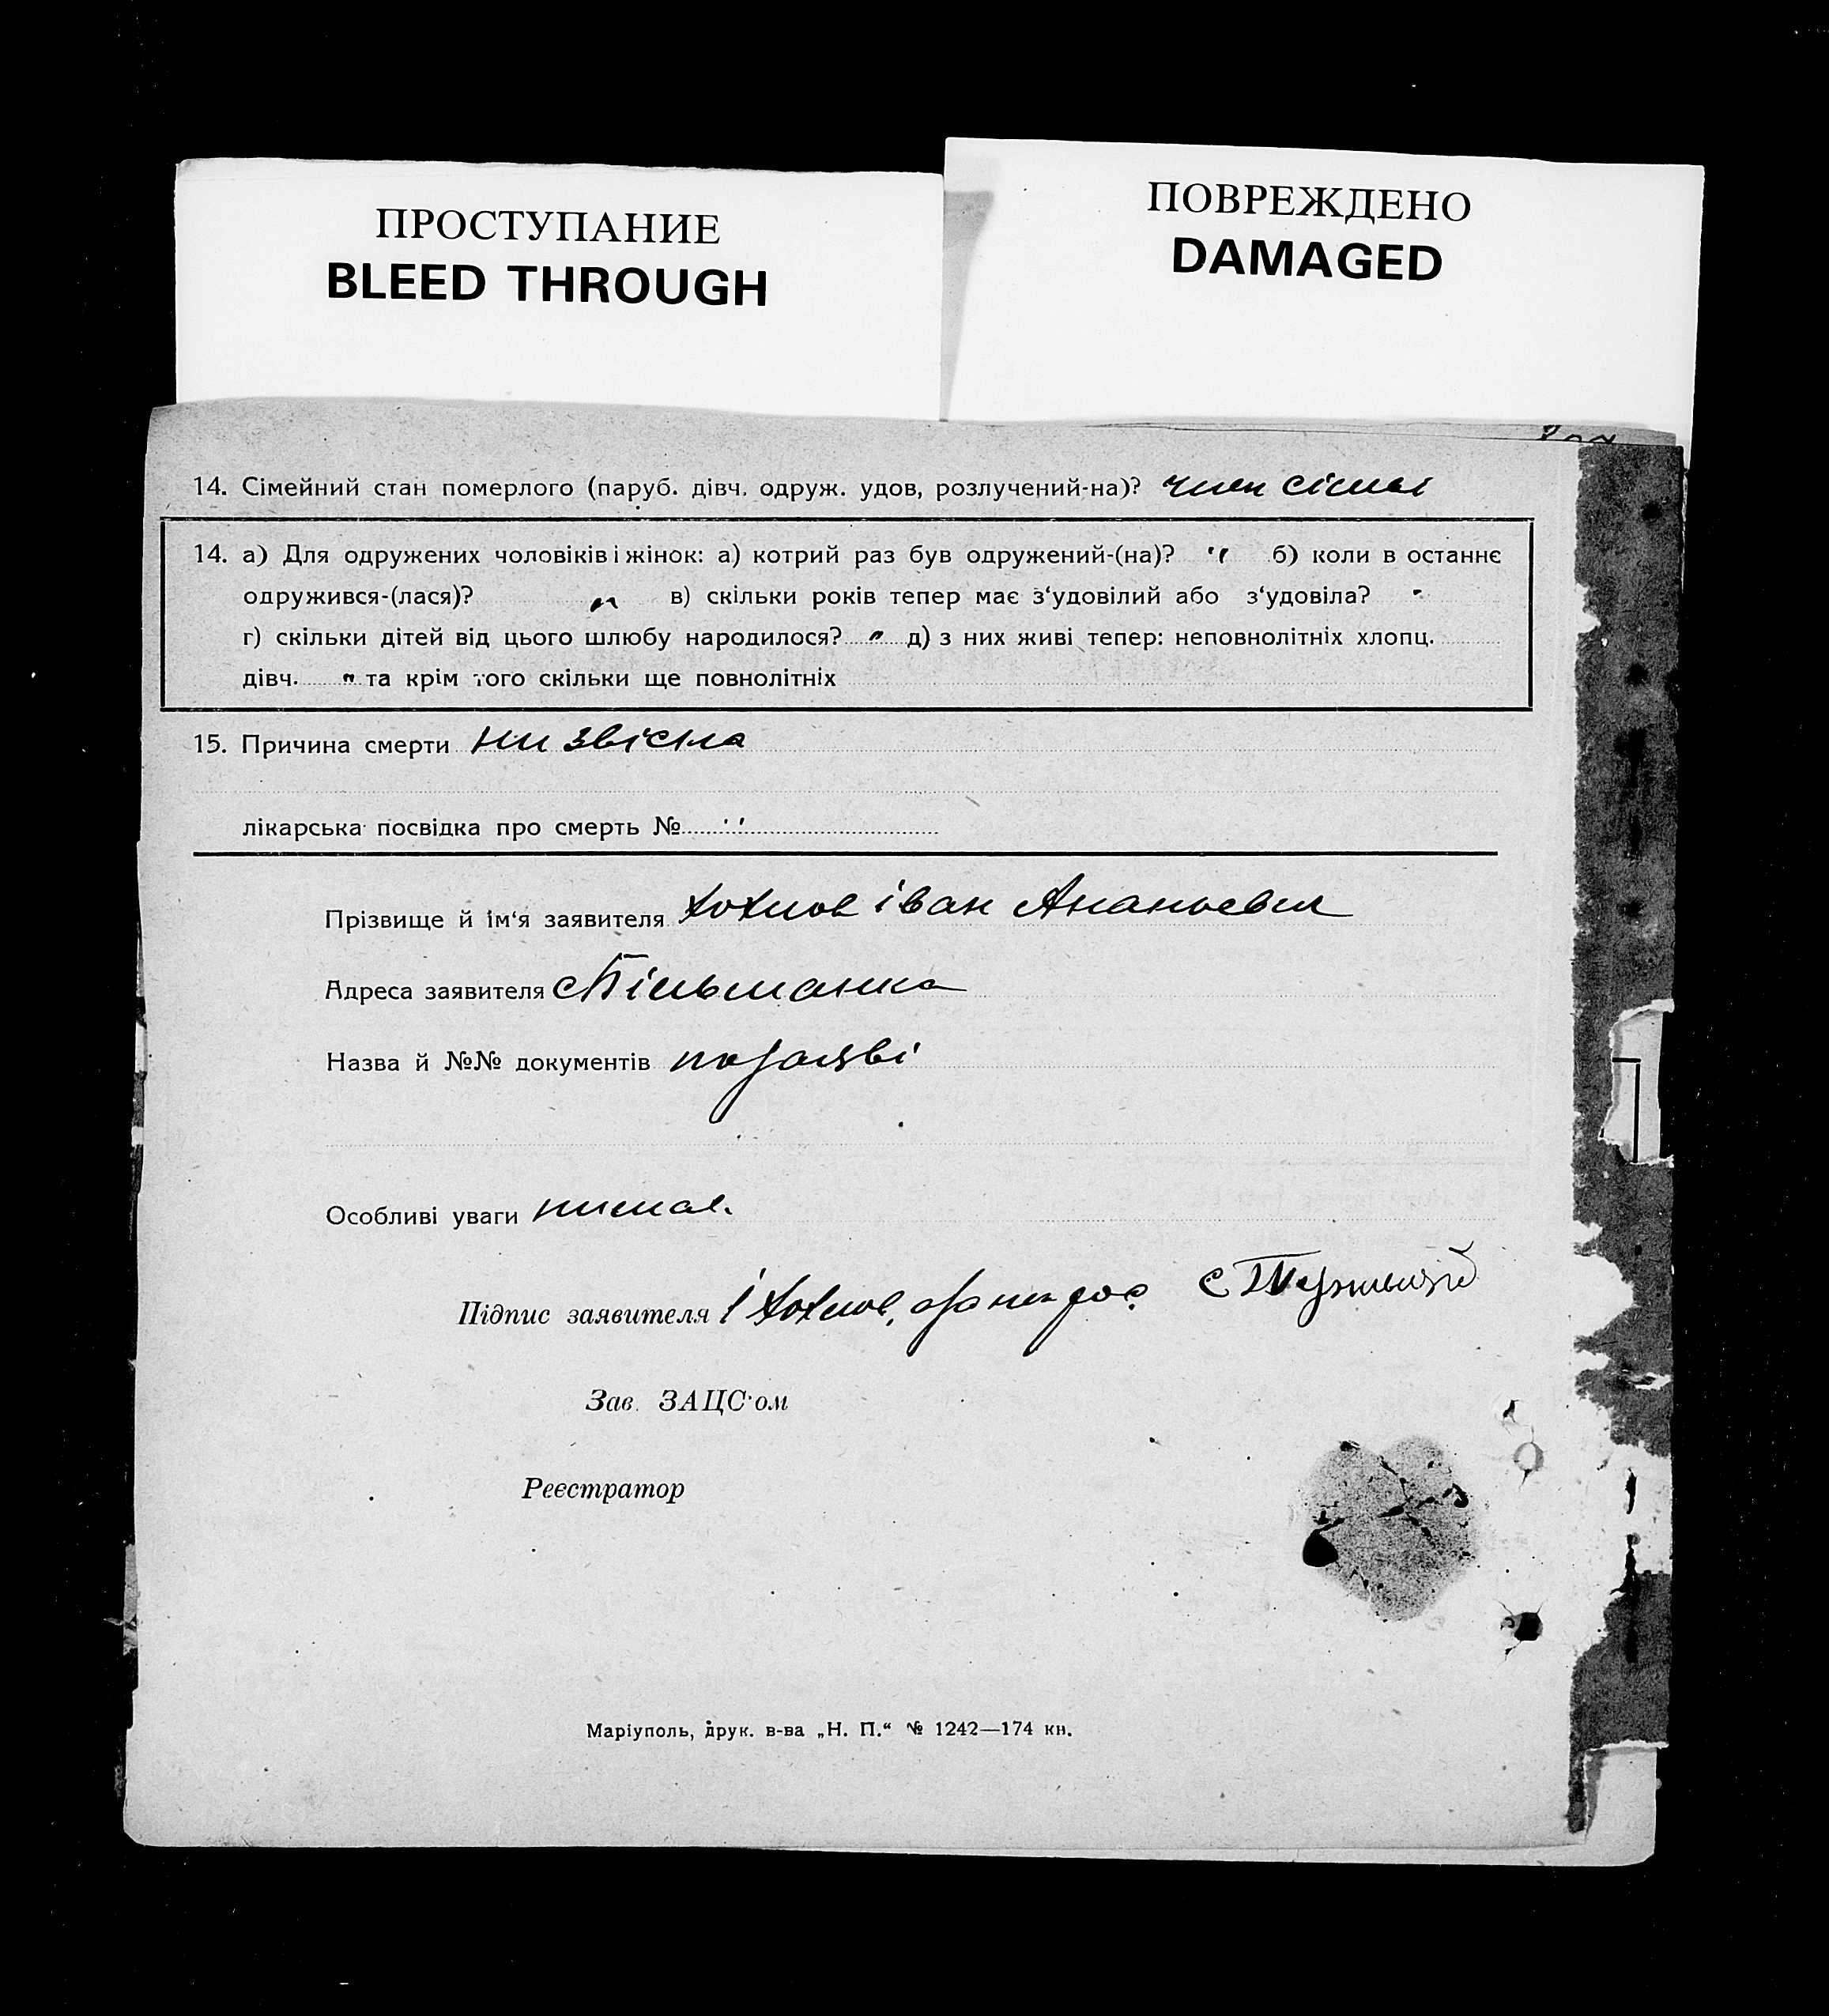 ПРОСТУПАНИЕ
BLEED THROUGH
ПОВРЕЖДЕНО
DAMAGED
14. Сімейний стан померлого (паруб. дівч. одруж. удов, розлучений-на)? член сімьі
14. а) Для одружених чоловіків і жінок: а) котрий раз був одружений-(на)? " б) коли в останнє
одружився-(лася)? " в) скільки років тепер має з‘удовілий або з‘удовіла? "
г) скільки дітей від цього шлюбу народилося? " д) з них живі тепер: неповнолітніх хлопц.
дівч. " та крім того скільки ще повнолітніх
15. Причина смерти ни звісна
лікарська посвідка про смерть № "
Прізвище й ім‘я заявителя Хохлов іван Ананьевич
Адреса заявителя с Більманка
Назва й №№ документів по заяві
Особливі уваги нимає.
Підпис заявителя І Хохлов,
Зав. ЗАЦС‘ом
Реєстратор
Маріуполь, друк. в-ва „Н. П.“ № 1242—174 кн.